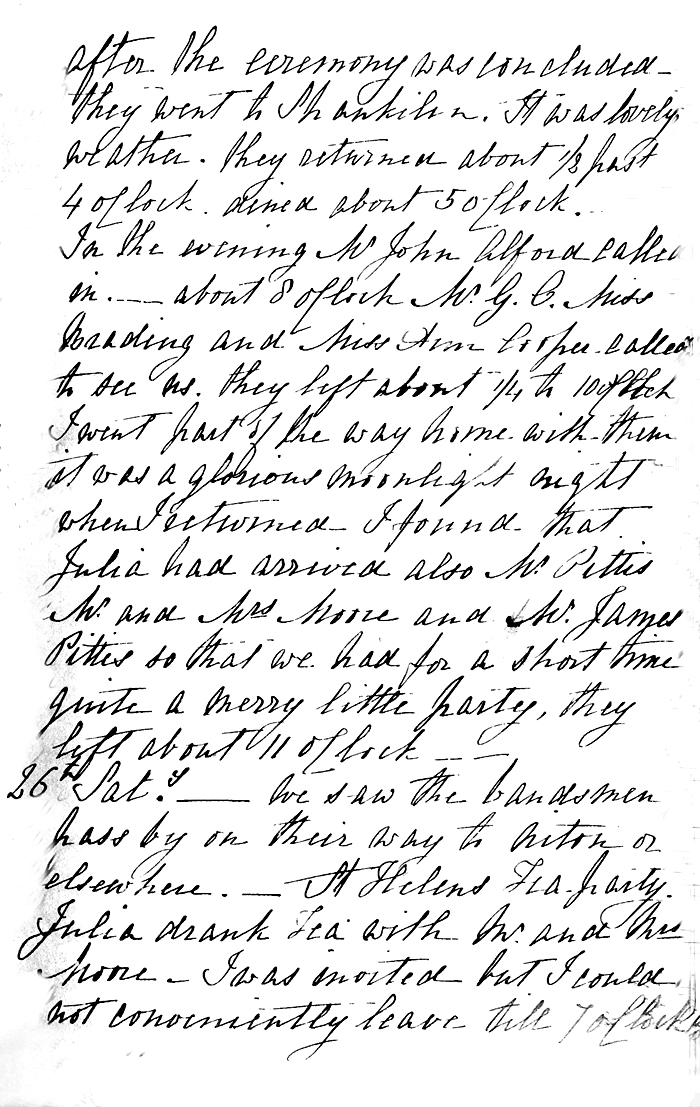 after the ceremony was concluded -
they went to Shanklin. It was lovely
weather. they returned about 1/2 past
4 o'Clock. dined about 5 o'Clock.
In the evening Mr John Alford called
in. -- about 8 o'Clock Mr. G. C. Miss
Brading and Miss Ann Cooper called
to see us. they left about 1/4 to 10 o'Clock
I went part of the way home with them
it was a glorious moonlight night
when I returned - I found that
Julia had arrived also Mr Pittis
Mr. and Mrs Moore and Mr. James
Pittis so that we had for a short time
quite a merry little party, they
left about 11 o'Clock --
26th Sat.y — We saw the bandsmen
pass by on their way to Niton or
elsewhere. — St Helens Tea-party.
Julia drank Tea with Mr. and Mrs
Moore - I was invited but I could
not conveniently leave till 7 o'Clock